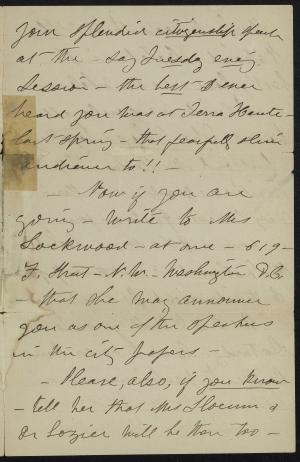 your splendid citizenship speech
at the - say Tuesday eve'g
Session - the best I ever
heard you was at Terra Haute -
last spring - that fearfully slim
audience to!! -
- Now if you are
going - write to Mrs
Lockwood - at one - 619 -
F. Street - N.W. - Washington D.C.
- that she may announce
you as one of the speakers
in the city papers -
- Please, also, if you know
- tell her that Mrs Slocum &
Dr Lozier will be there too -